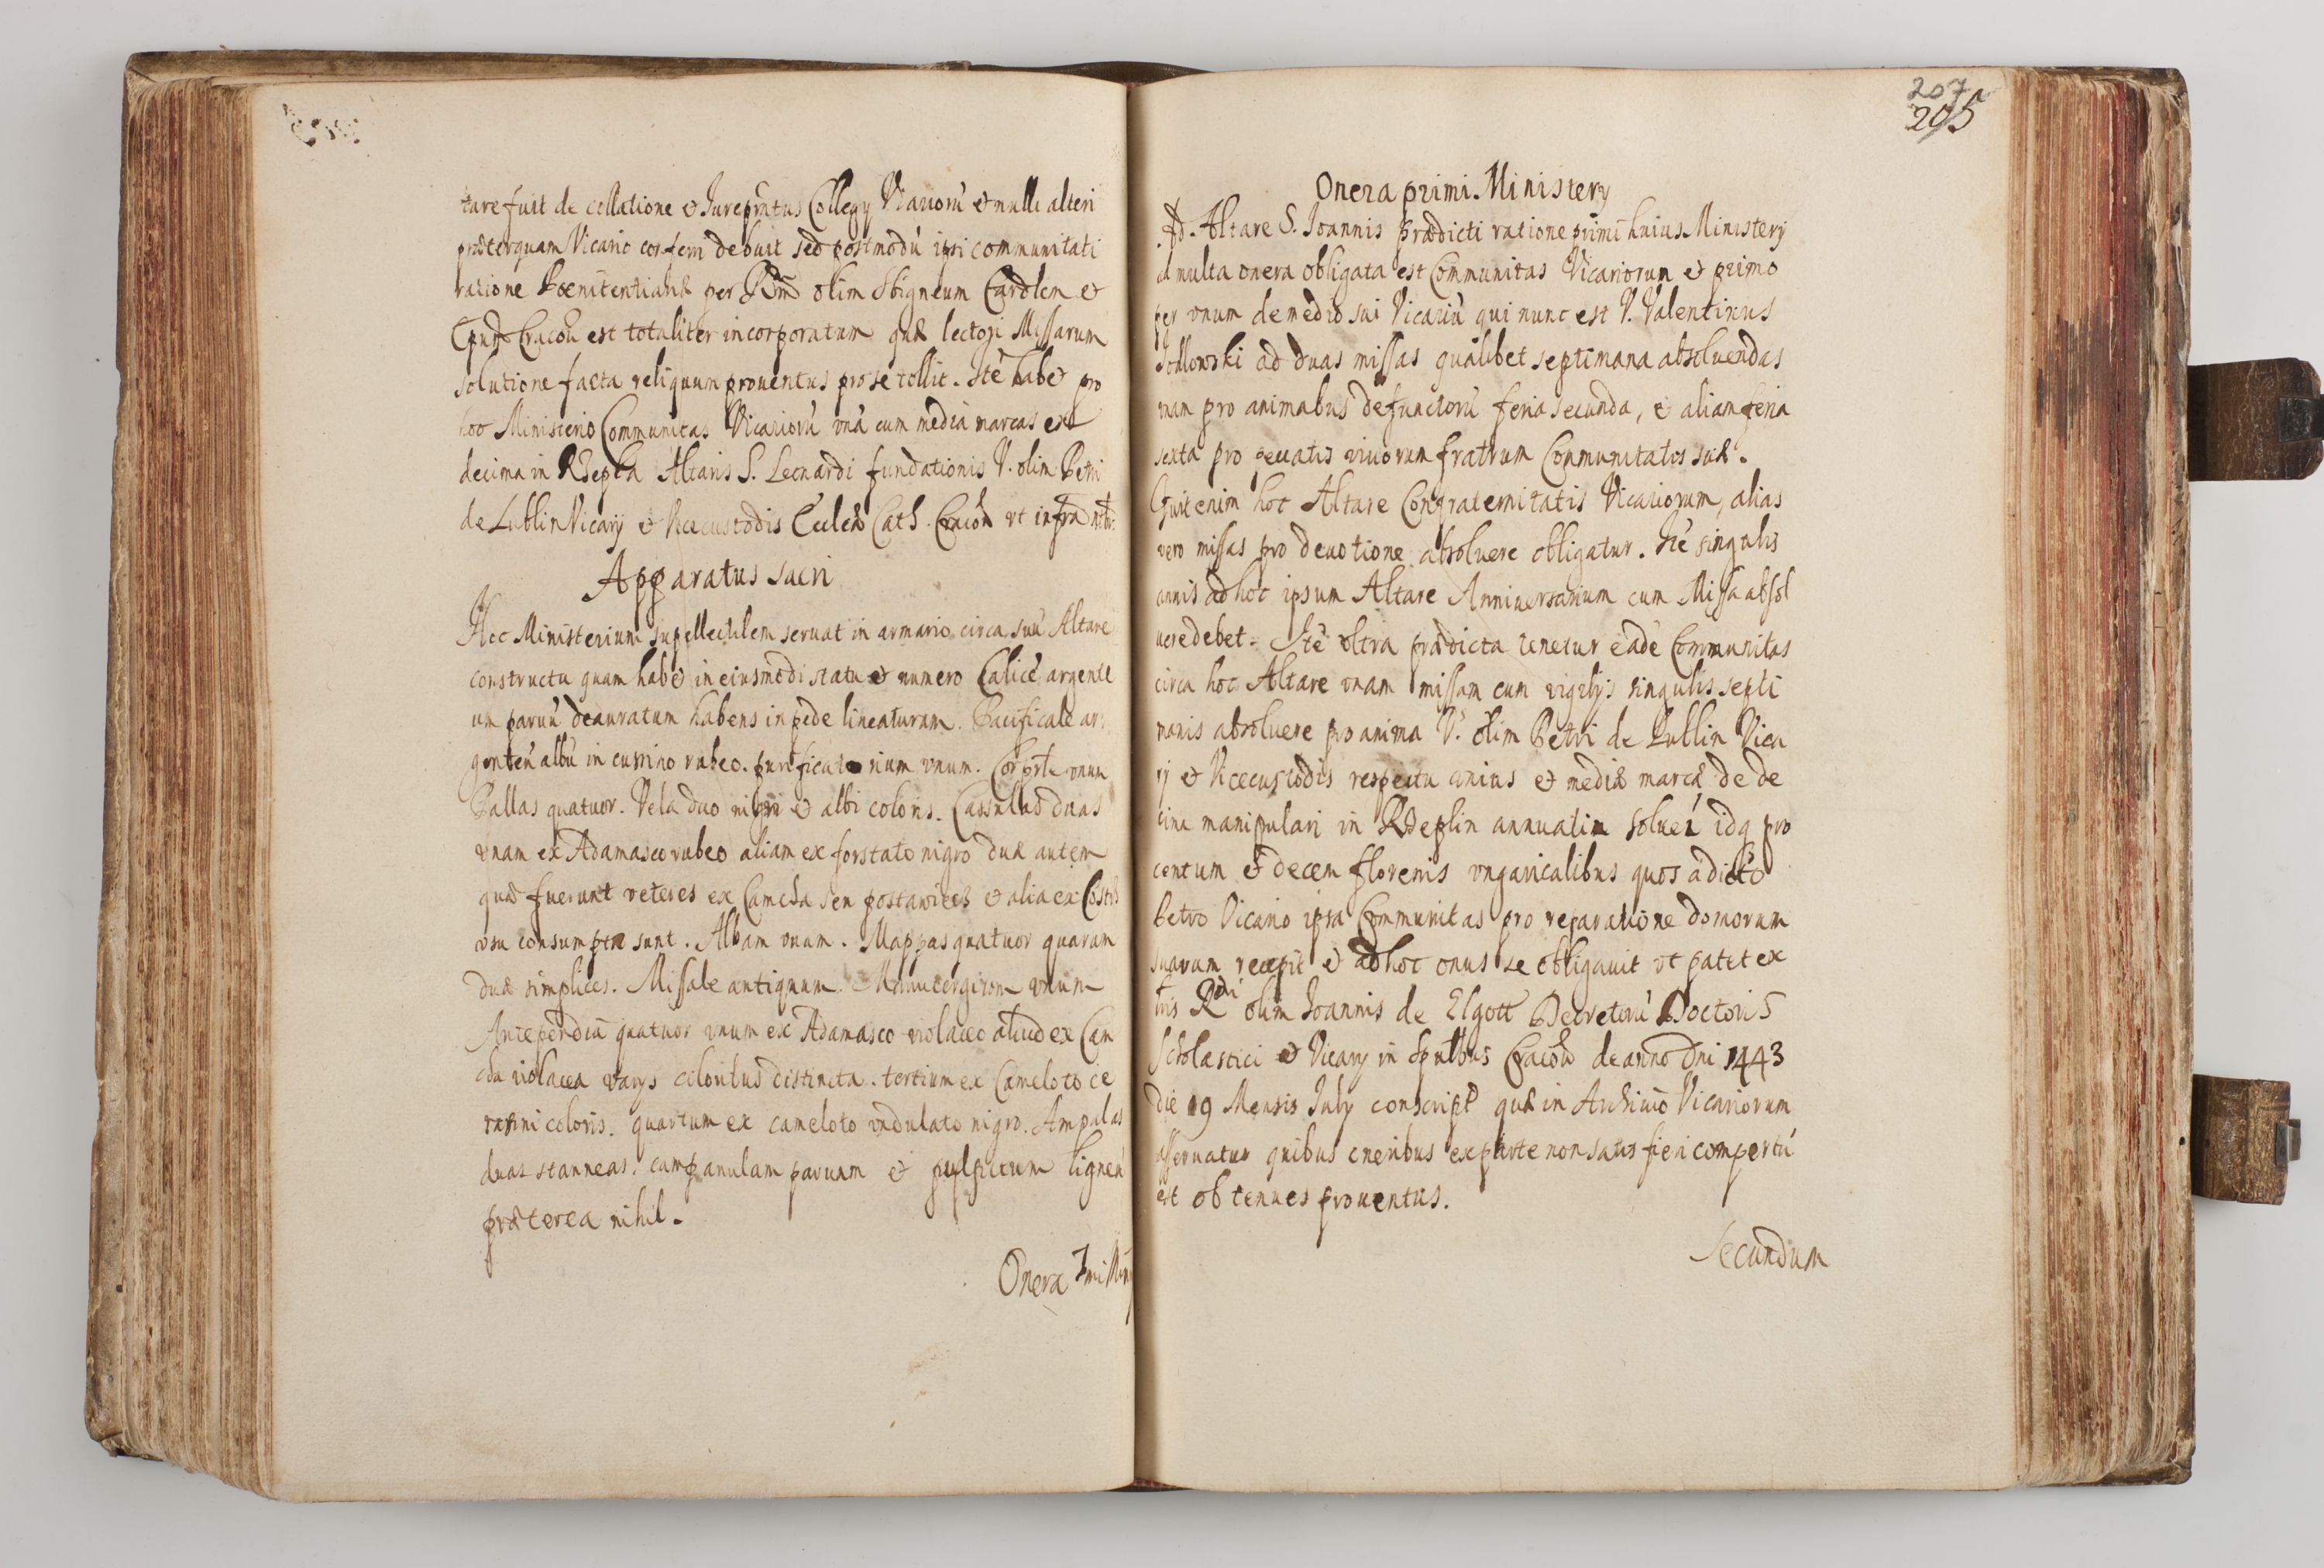 tare fuit de collatione & Jurepñtus Collegÿ Vicarioru᷑ & nulli alteri
præterquam Vicario conferri debuit sed postmodu᷑ ipsi communitati
ratione Pœnitentiariæ per Rm̃ olim Sbigneum Cardlem &
Epum Cracoũ est totaliter incorporatum quæ lectori Missarum
solutione facta reliquum prouentus pro se tollit. Itẽ habet pro
hoc Ministerio Communitas Vicarioru᷑ unã cum media marcas ex
decima in Rzepka Altaris S. Leonardi fundationis V. olim Petri
de Lublin Vicarij & Vicecustodis Eccleæ Cath. Cracoũ vt infra
Apparatus sacri
Hoc Ministerium supellectilem seruat in armario circa suũ Altare
constructu quam habet in eiusmodi statu & numero Calicẽ argente
um paruũ deauratum habens in pede lineaturam. Pacificale ar
genteũ albũ in cussino rubeo. purificatorium vnum. Corprle vnum
Pallas quatuor. Vela duo nigri & albi coloris. Cassulas duas
vnam ex Adamasco rubeo aliam ex forstato nigro duæ autem
quæ fuerunt veteres ex Camcha seu & alia ex
vsu consumptæ sunt. Albam vnam. Mappas quatuor quarum
duæ simplices. Missale antiquum. Manutergium vnum
Antependiũ quatuor vnum ex Adamasco violaceo aliud ex Cam
cha violacea varys coloribus distincta. tertium ex Cameloto ce
rasini coloris. quartum ex cameloto vndulato nigro. Ampulas
duas stanneas. campanulam paruam & pulpitum ligneũ
præterea nihil.
Onera Imi Min
207
205
Onera primi Ministerÿ
Ad Altare S. Joannis prædicti ratione primi huius Ministerÿ
ad multa onera obligata est Communitas Vicariorum & primo
per vnum de medio sui Vicariũ qui nunc est V. Valentinus
Jodlowski ad duas missas qualibet septimana absoluendas
vnam pro animabus defunctorũ feria secunda, & aliam feria
sexta pro peccatis viuorum fratrum Communitatis suæ.
Fuit enim hoc Altare Confraternitatis Vicariorum, alias
vero missas pro deuotione absoluere obligatur. Itẽ singulis
annis ad hoc ipsum Altare Anniuersarium cum Missa absol
uere debet. Itẽ vltra prædicta tenetur eadẽ Communitas
circa hoc Altare vnam missam cum vigilÿs singulis septi
manis absoluere pro anima V. olim Petri de Lublin Vica
rÿ & Vicecustodis respectu vnius & mediæ marcæ de de
cima manipulari in Rzeplin annuatim soluen idq pro
centum & decem florenis vngaricalibus quos a dicto
Petro Vicario ipsa Communitas pro reparatione domorum
suarum recepit & ad hoc onus se obligauit vt patet ex
lris Rndi olim Joannis de Elgott Decretorũ Doctoris
Scholastici & Vicarÿ in Spũlbus Cracoũ de anno Dni 1443
die 19 Mensis July conscript quæ in Archiuio Vicariorum
asseruatur quibus oneribus ex parte non satis fieri compertũ
est ob tenues prouentus.
Secundum